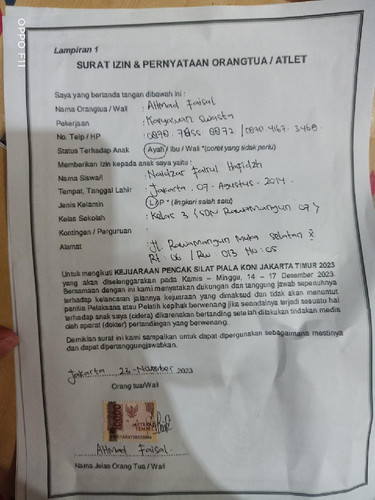 OPPO F11
Lampiran 1
SURAT IZIN & PERNYATAAN ORANGTUA / ATLET
Saya yang bertanda tangan dibawah ini :
Nama Orangtua / Wali : Ahmad Faisal
Pekerjaan : Karyawan Swasta
No. Telp / HP : 0890. 7855 8872 / 0890 4167 3468
Status Terhadap Anak : Ayah / Ibu / Wali *(coret yang tidak perlu)
Memberikan Izin kepada anak saya yaitu :
Nama Siswa/i : Faisul Hafidzh
Tempat, Tanggal Lahir : Jakarta, 07 - Agustus - 2014.
Jenis Kelamin : L / P * (lingkari salah satu)
Kelas Sekolah : Kelas 3 / SDN Rawamangun 07
Kontingen / Perguruan :
Alamat : Jl. Rawamangun Muka Selatan
Rt 06 / Rw 013 No: 05
Untuk mengikuti KEJUARAAN PENCAK SILAT PIALA KONI JAKARTA TIMUR 2023
yang akan diselenggarakan pada Kamis – Minggu, 14 – 17 Desember 2023.
Bersamaan dengan ini kami menyatakan dukungan dan tanggung jawab sepenuhnya
terhadap kelancaran jalannya kejuaraan yang dimaksud dan tidak akan menuntut
panitia Pelaksana atau Pelatih kapihak berwenang jika seandainya terjadi sesuatu hal
terhadap anak saya (cidera) dikarenakan bertanding setelah dilakukan tindakan medis
oleh aparat (dokter) pertandingan yang berwenang.
Demikian surat ini kami sampaikan untuk dapat dipergunakan sebagaimana mestinya
dan dapat dipertanggungjawabkan.
Jakarta, 23 - November 2023
Orang tua/Wali
10000
METERAI
TEMPEL
Ahmad Faisal
Nama Jelas Orang Tua / Wali